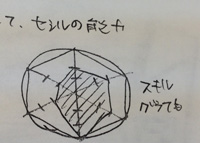 て、セシルの能力
スキル
グッてる